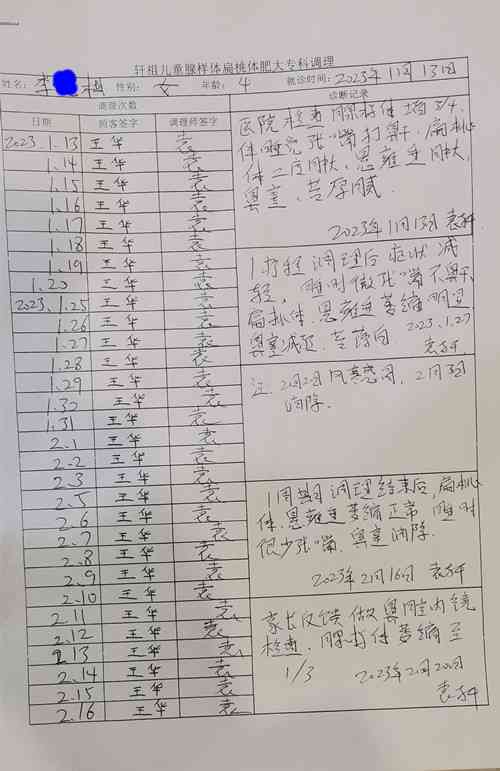 轩祖儿童腺样体扁桃体肥大专科调理
姓名: 李 性别: 女 年龄: 4 就诊时间: 2023年1月13日
调理次数 诊断记录
日期 顾客签字 调理师签字
2023.1.13 王华 袁
1.14 王华 袁
1.15 王华 袁
1.16 王华 袁
1.17 王华 袁
1.18 王华 袁
1.19 王华 袁
1.20 王华 袁
2023.1.25 王华 袁
1.26 王华 袁
1.27 王华 袁
1.28 王华 袁
1.29 王华 袁
1.30 王华 袁
1.31 王华 袁
2.1 王华 袁
2.2 王华 袁
2.3 王华 袁
2.5 王华 袁
2.6 王华 袁
2.7 王华 袁
2.8 王华 袁
2.9 王华 袁
2.10 王华 袁
2.11 王华 袁
2.12 王华 袁
2.13 王华 袁
2.14 王华 袁
2.15 王华 袁
2.16 王华 袁
医院检查腺样体堵3/4,
伴睡觉张嘴打鼾,扁桃
体二度肿大,悬雍垂肿大,
鼻塞,舌厚腻.
2023年1月13日 袁
1疗程调理后症状减
轻,睡时微张嘴不鼾,
扁桃体.悬雍垂萎缩明显
鼻塞减轻.舌薄白 2023.1.27
袁
注.2月2日风寒感冒,2月
消除.
1周期调理结束后,扁桃
体.悬雍垂萎缩正常,睡时
很少张嘴.鼻塞消除.
2023年2月16日 袁
家长反馈做鼻腔内镜
检查,腺样体萎缩至
1/3 2023年2月20日
袁